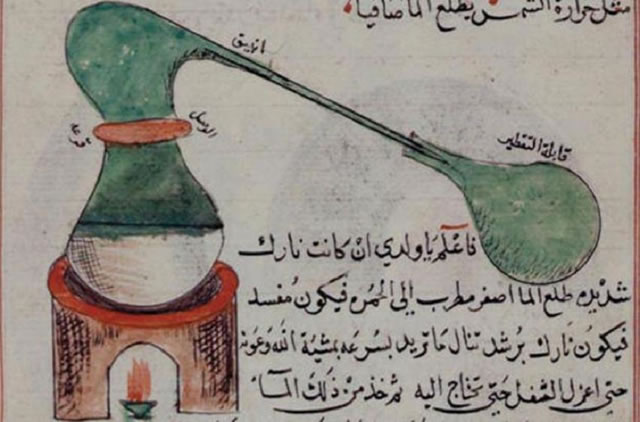 مثل حرارة الشمس يطلع الما صافيا
انبيق
الوصل
قرعه
قابلة التقطير
فاعلم يا ولدي ان كانت نارك
شديده طلع الما اصفر مطرب الى الحمره فيكون مفسد
فيكون نارك برشد تنال ما تريد بسرعه بمشية الله وعونه
حتى اعزل الثفل حتى تحتاج اليه ثم خذ من ذلك المآ